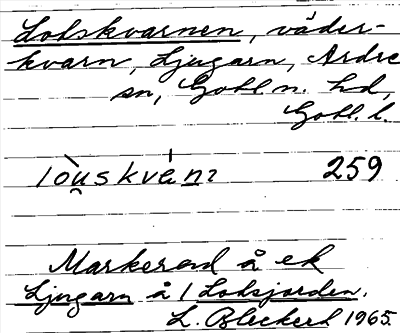 Lotskvarnen, väder-
kvarn, Ljugarn, Ardre
sn, Gotl. n. hd,
Gotl. l.
259
Markerad å ek
Ljugarn å / Lotsjorden.
L. Bleckert 1965.